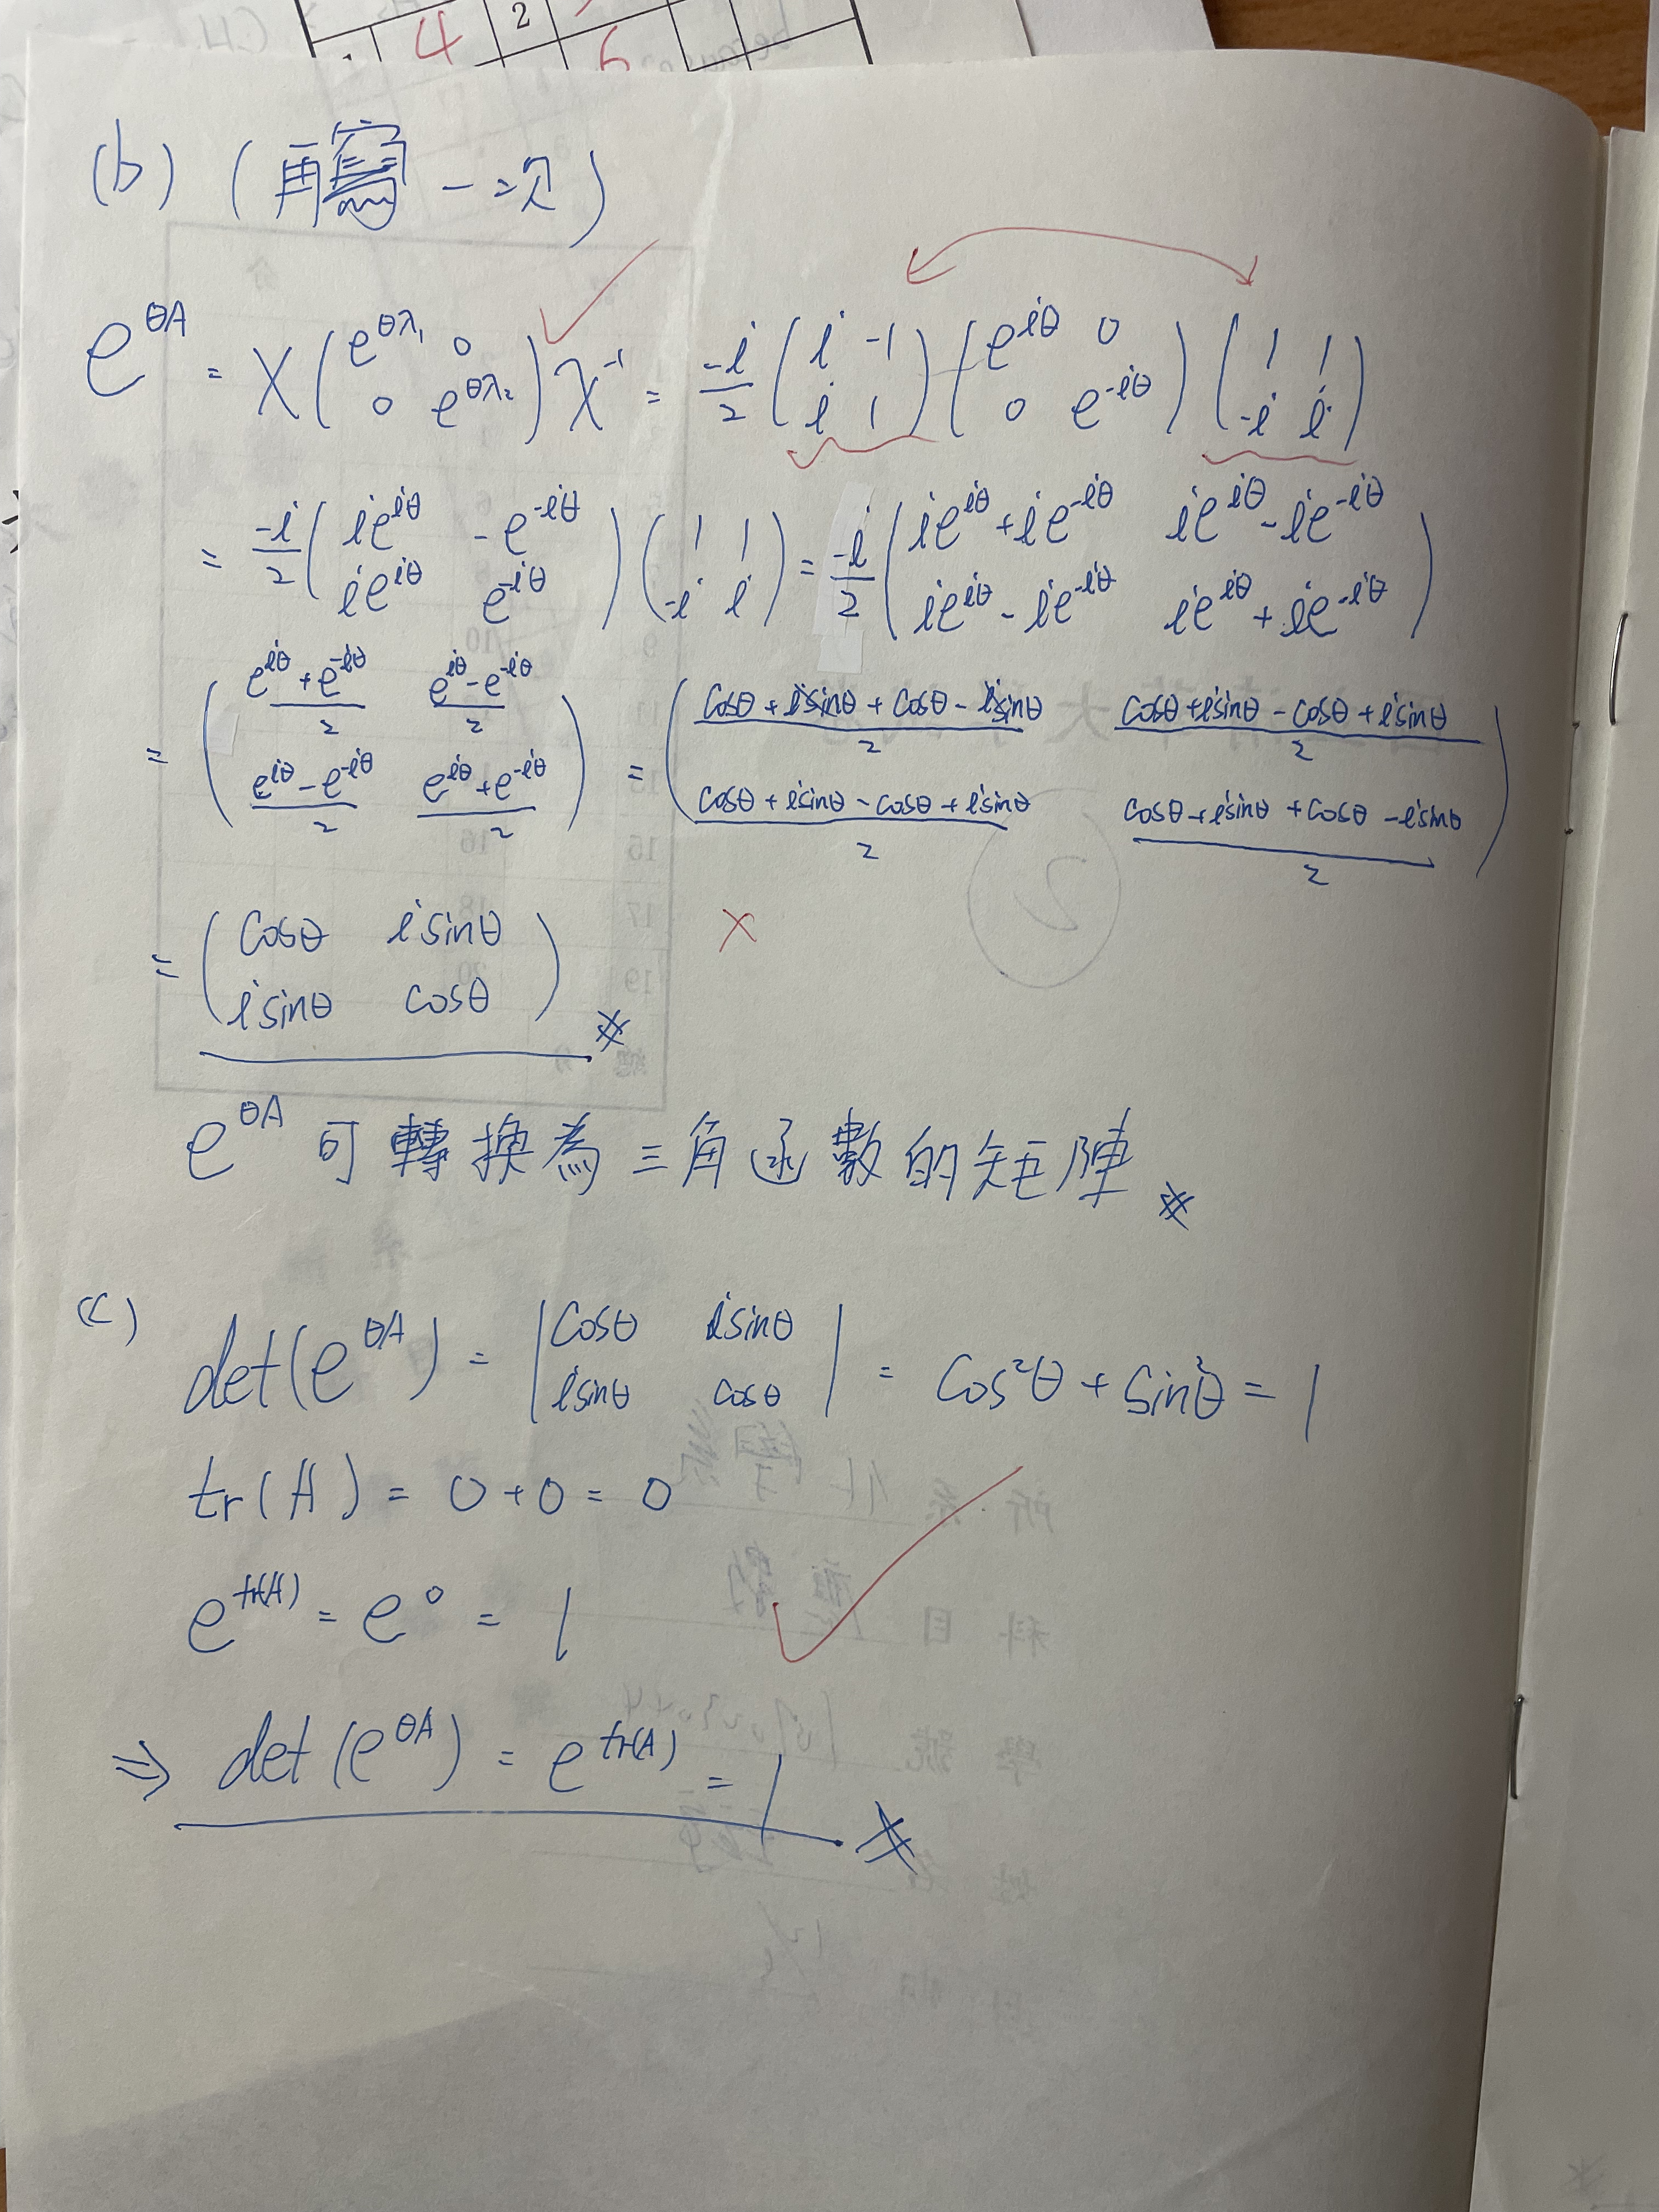 4 2 6
(b) (再寫一次)
e^{θA} = X \begin{pmatrix} e^{θλ_1} & 0 \\ 0 & e^{θλ_2} \end{pmatrix} X^{-1} = \frac{-i}{2} \begin{pmatrix} i & -1 \\ i & 1 \end{pmatrix} \begin{pmatrix} e^{iθ} & 0 \\ 0 & e^{-iθ} \end{pmatrix} \begin{pmatrix} 1 & 1 \\ -i & i \end{pmatrix}
= \frac{-i}{2} \begin{pmatrix} ie^{iθ} & -e^{-iθ} \\ ie^{iθ} & e^{-iθ} \end{pmatrix} \begin{pmatrix} 1 & 1 \\ -i & i \end{pmatrix} = \frac{-i}{2} \begin{pmatrix} ie^{iθ}+ie^{-iθ} & ie^{iθ}-ie^{-iθ} \\ ie^{iθ}-ie^{-iθ} & ie^{iθ}+ie^{-iθ} \end{pmatrix}
= \begin{pmatrix} \frac{e^{iθ}+e^{-iθ}}{2} & \frac{e^{iθ}-e^{-iθ}}{2} \\ \frac{e^{iθ}-e^{-iθ}}{2} & \frac{e^{iθ}+e^{-iθ}}{2} \end{pmatrix} = \begin{pmatrix} \frac{cosθ+isinθ+cosθ-isinθ}{2} & \frac{cosθ+isinθ-cosθ+isinθ}{2} \\ \frac{cosθ+isinθ-cosθ+isinθ}{2} & \frac{cosθ+isinθ+cosθ-isinθ}{2} \end{pmatrix}
= \begin{pmatrix} cosθ & isinθ \\ isinθ & cosθ \end{pmatrix}
e^{θA} 可轉換為三角函數的矩陣
(c) det(e^{θA}) = \begin{vmatrix} cosθ & isinθ \\ isinθ & cosθ \end{vmatrix} = cos²θ + sin²θ = 1
tr(A) = 0+0 = 0
e^{tr(A)} = e^0 = 1
⇒ det(e^{θA}) = e^{tr(A)} = 1